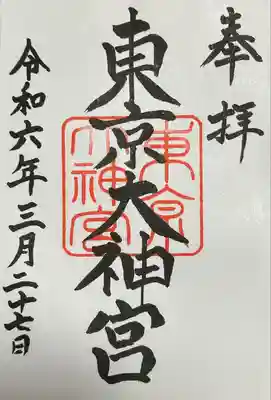 奉拝
東京大神宮
東京大神宮
令和六年三月二十七日